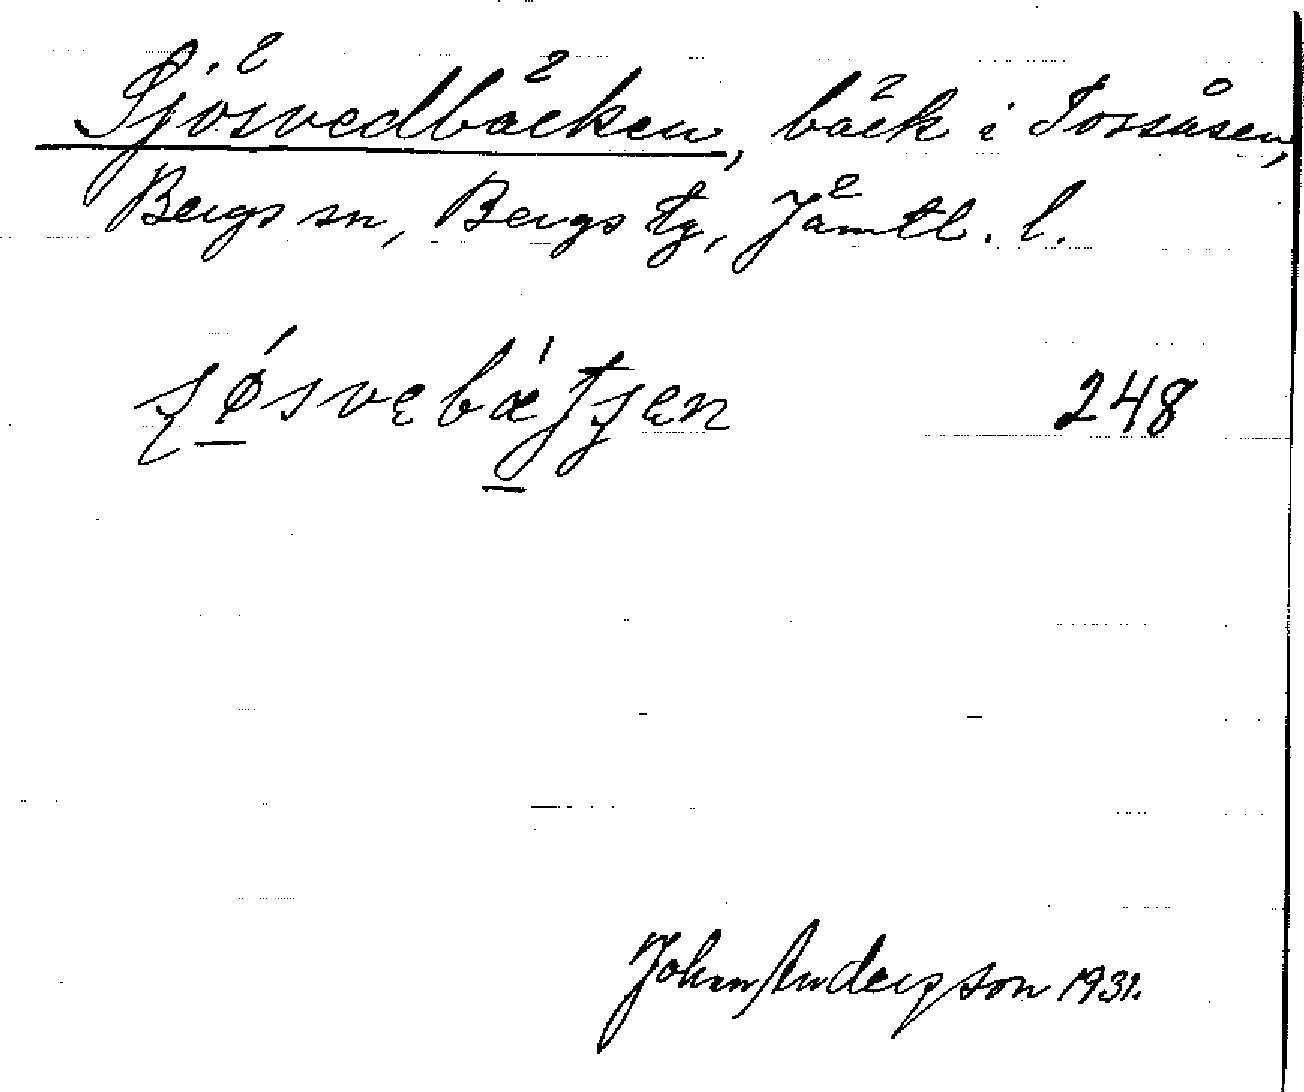 Sjösvedbäcken, bäck i Tossåsen,
Bergs sn, Bergs tg, Jämtl. l.
248
John Andersson 1931.